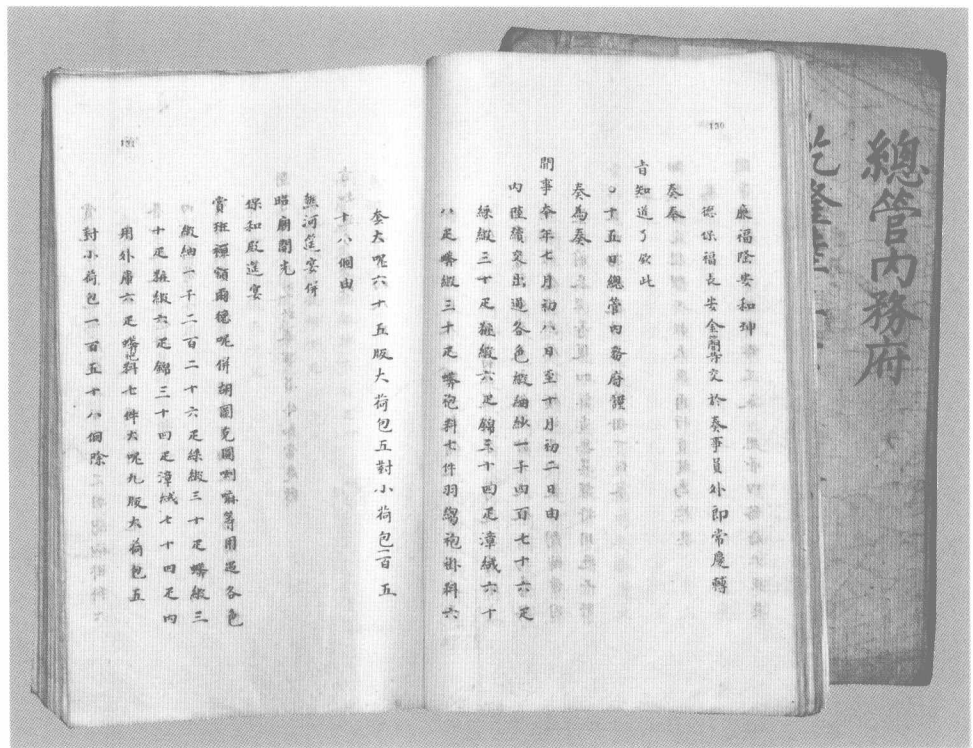 總管內務府
乾隆
150
廂福隆安和珅
德保福長安金簡等交於奏事員外郎常慶轉
奏奉
旨知道了欽此
○十五日總管內務府謹
奏為奏
聞事本年七月初八日至十月初二日由
內陸續交出進各色緞紬紗一千四百七十六疋
綵緞三十疋粧緞六疋錦三十四疋漳絨六十
八疋蟒緞三十疋蟒袍料七件羽縐袍褂料六
套大呢六十五版大荷包五對小荷包二百五
151
十八個由
熱河筵宴併
昭廟開光
保和殿筵宴
賞班禪額爾德呢併胡圖克圖喇嘛等用過各色
緞紬一千二百二十六疋綵緞三十疋蟒緞三
十疋粧緞六疋錦三十四疋漳絨七十四疋內
用外庫六疋蟒袍料七件大呢九版大荷包五
對小荷包一百五十八個除